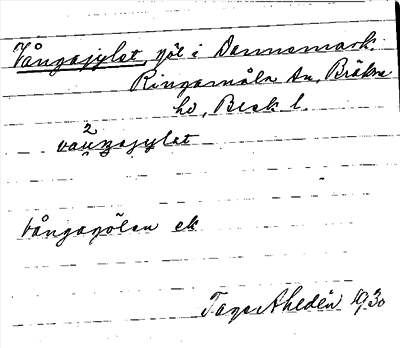 Vångagylet, göl i Dannemark.
Ringamåla sn, Bräkne
hd, Blek l.
2
vauŋagylet
Vångagölen ek
Tage Ahedén 1930